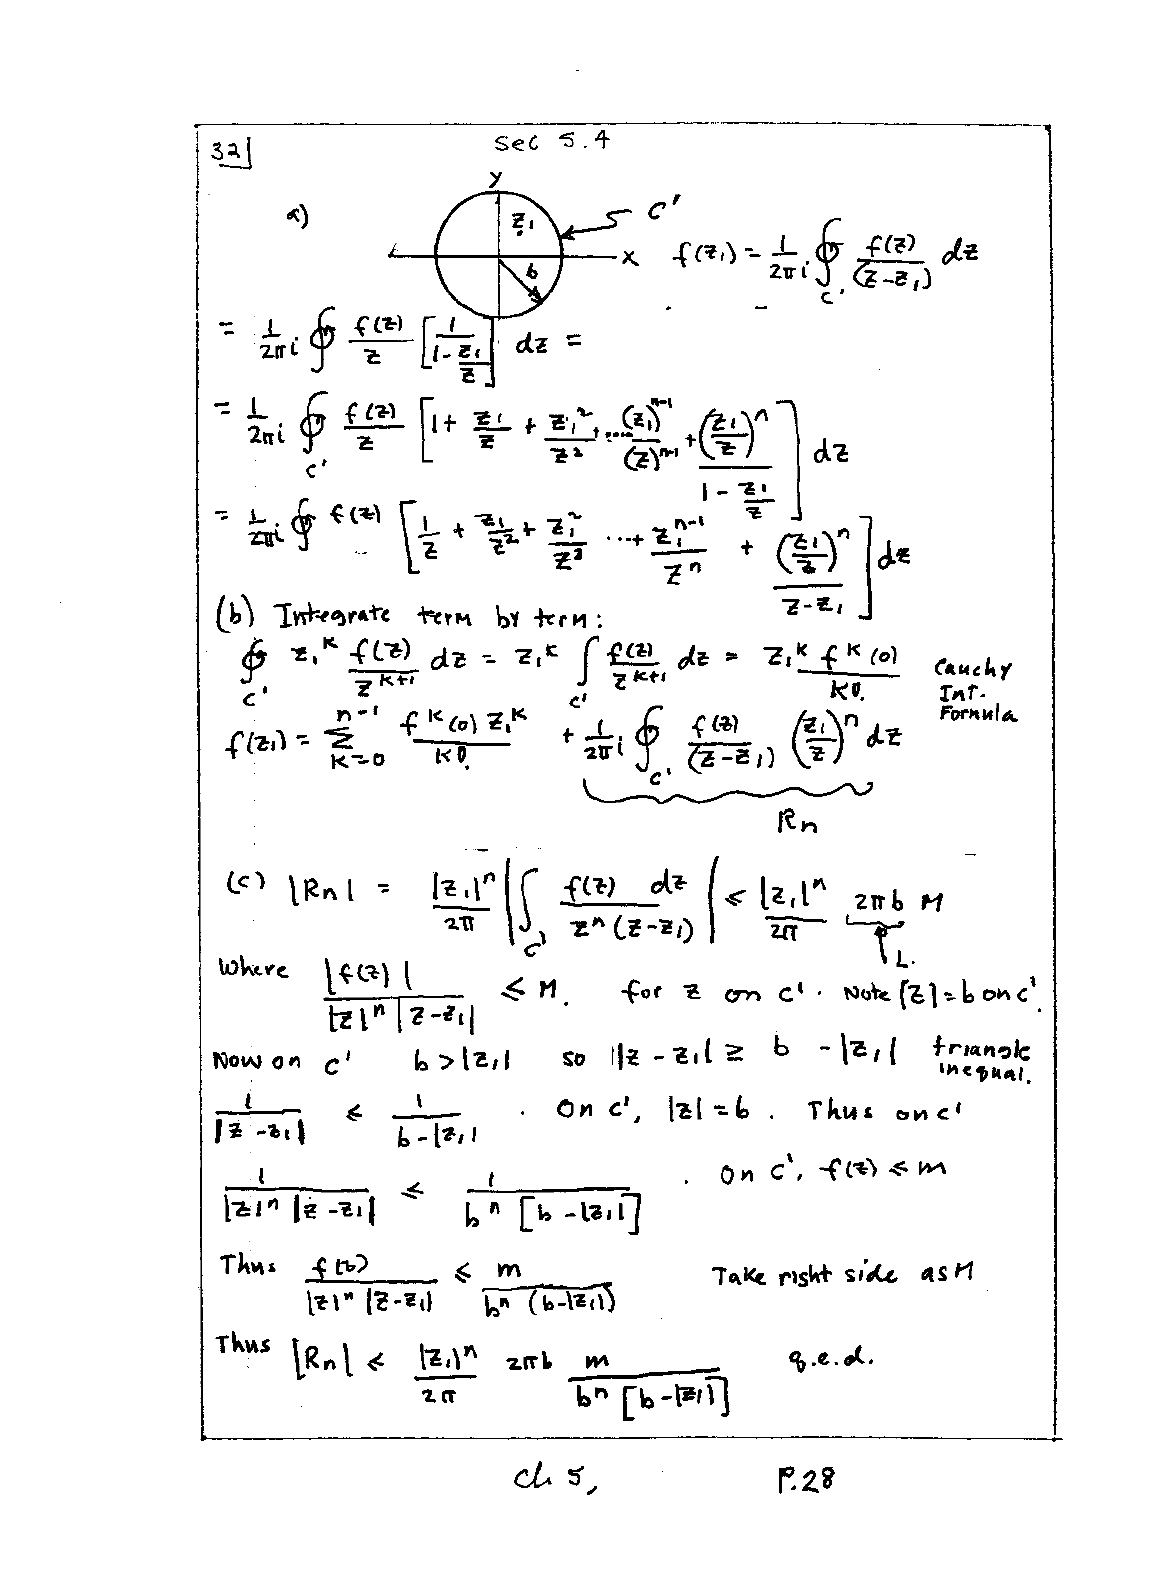 32] Sec 5.4
a) y z₁ b x C' f(z₁) = 1/(2πi) ∮_C' f(z)/(z-z₁) dz
= 1/(2πi) ∮ f(z)/z [1/(1-z₁/z)] dz =
= 1/(2πi) ∮_C' f(z)/z [1 + z₁/z + z₁²/z² + .... (z₁)^(n-1)/(z)^(n-1) + (z₁/z)^n/(1 - z₁/z)] dz
= 1/(2πi) ∮ f(z) [1/z + z₁/z² + z₁²/z³ ...+ z₁^(n-1)/z^n + (z₁/z)^n/(z-z₁)] dz
(b) Integrate term by term:
∮_C' z₁^k f(z)/z^(k+1) dz = z₁^k ∫_C' f(z)/z^(k+1) dz = z₁^k f^k(0)/k! Cauchy Int. Formula
f(z₁) = Σ_(k=0)^(n-1) f^k(0) z₁^k/k! + 1/(2πi) ∮_C' f(z)/(z-z₁) (z₁/z)^n dz
Rn
(c) |Rn| = |z₁|^n/2π |∫_C' f(z) dz/(z^n (z-z₁))| ≤ |z₁|^n/2π 2πb M
L.
Where |f(z)|/(|z|^n |z-z₁|) ≤ M. for z on C'. Note |z|=b on C'.
Now on C' b>|z₁| so |z - z₁| ≥ b - |z₁| triangle inequal.
1/|z-z₁| ≤ 1/(b-|z₁|) . On C', |z|=b. Thus on C'
1/(|z|^n |z-z₁|) ≤ 1/(b^n [b-|z₁|]) . On C', f(z) ≤ m
Thus f(z)/(|z|^n |z-z₁|) ≤ m/(b^n (b-|z₁|)) Take right side as M
Thus |Rn| ≤ |z₁|^n/2π 2πb m/(b^n [b-|z₁|]) q.e.d.
Ch 5, P.28